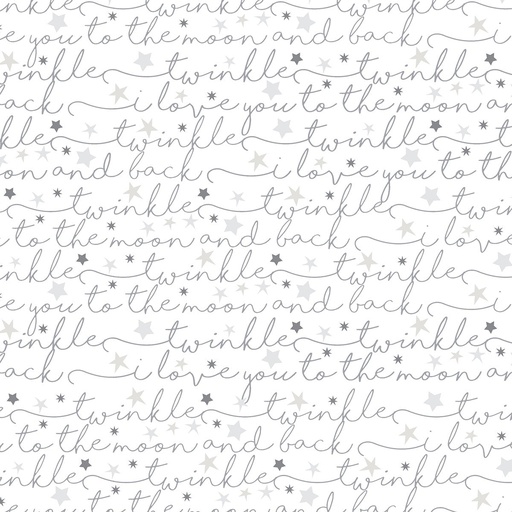 twinkle twinkle
e you to the moon and back i
winkle twinkle twinkle
back i love you to the moon an
nkle twinkle twinkle
oon and back i love you to th
twinkle twinkle twin
to the moon and back i love
inkle twinkle twinkle
e you to the moon and back i
winkle twinkle twinkle
back i love you to the moon an
twinkle twinkle twin
to the moon and back i lov
winkle twinkle twinkle
you to the moon and back